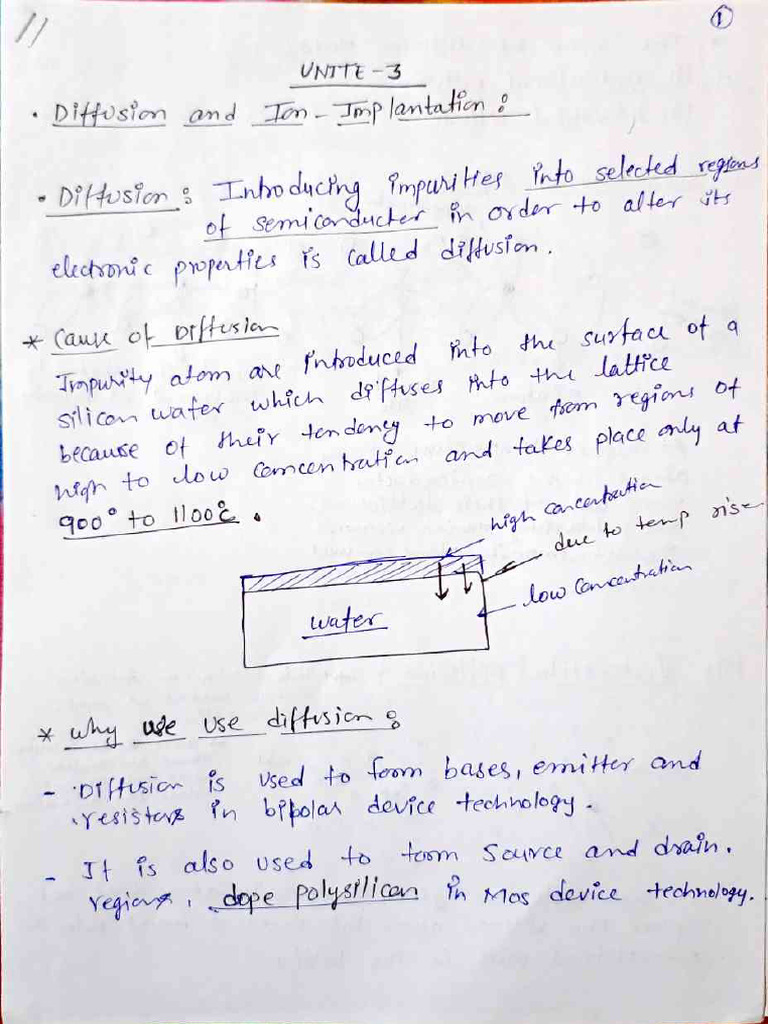 11
①
UNITE-3
• Diffusion and Ion-Implantation :
• Diffusion : Introducing impurities into selected regions
of semiconducter in order to alter its
electronic properties is called diffusion.
* Cause of Diffusion
Impurity atom are introduced into the surface of a
silicon wafer which diffuses into the lattice
because of their tendency to move from regions of
high to low concentration and takes place only at
900° to 1100°c .
high concentration
due to temp rise
low concentration
wafer
* why use use diffusion :
- Diffusion is used to form bases, emitter and
resistors in bipolar device technology.
- It is also used to form source and drain.
regions, dope polysilicon in Mos device technology.